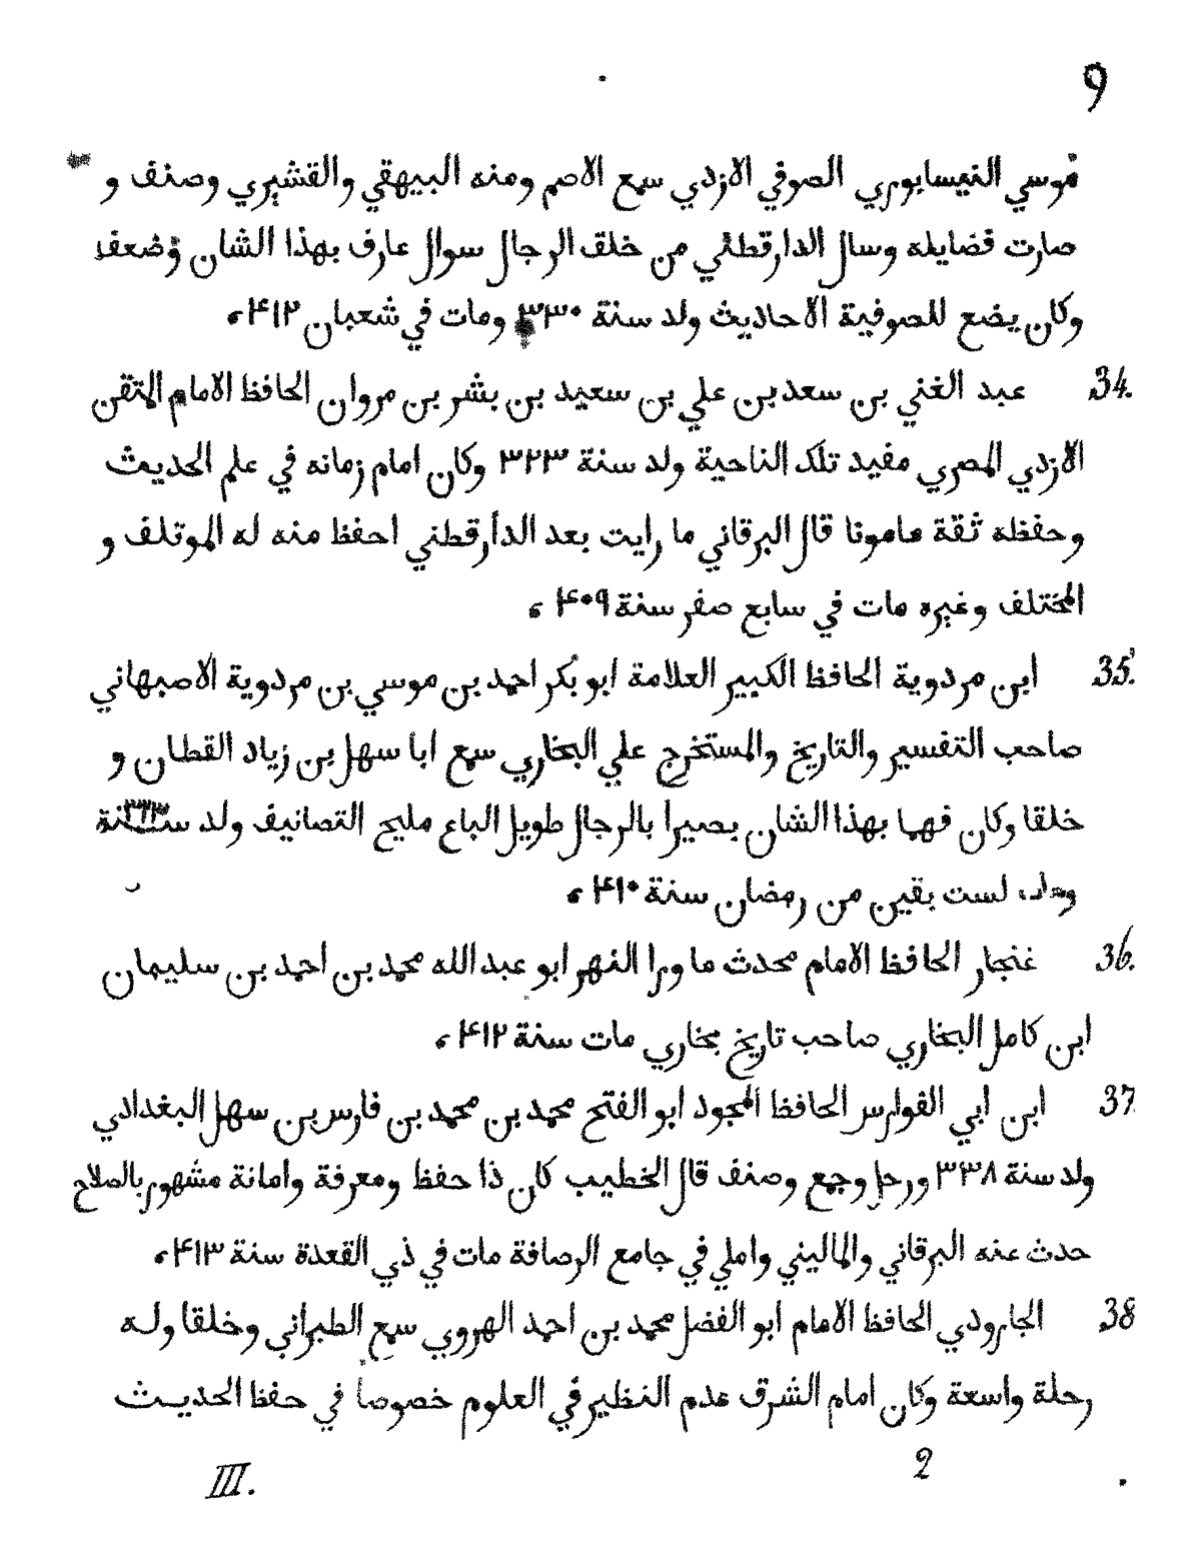 9
موسي النيسابوري الصوفي الازدي سمع الاصم ومنه البيهقي والقشيري وصنف و
صارت فضايله وسال الدارقطني من خلق الرجال سوال عارف بهذا الشان وضعف
وكان يضع للصوفية الاحاديث ولد سنة ٣٣٠ ومات في شعبان ۴١٢،
34. عبد الغني بن سعد بن علي بن سعيد بن بشر بن مروان الحافظ الامام المتقن
الازدي المصري مفيد تلك الناحية ولد سنة ٣٢٣ وكان امام زمانه في علم الحديث
وحفظه ثقة مامونا قال البرقاني ما رايت بعد الدارقطني احفظ منه له الموتلف و
المختلف وغيره مات في سابع صفر سنة ۴٠٩،
35. ابن مردوية الحافظ الكبير العلامة ابو بكر احمد بن موسي بن مردوية الاصبهاني
صاحب التفسير والتاريخ والمستخرج علي البخاري سمع ابا سهل بن زياد القطان و
خلقا وكان فهما بهذا الشان بصيرا بالرجال طويل الباع مليح التصانيف ولد سنة
لست بقين من رمضان سنة ۴١٠،
36. غنجار الحافظ الامام محدث ما ورا النهر ابو عبد الله محمد بن احمد بن سليمان
ابن كامل البخاري صاحب تاريخ بخاري مات سنة ۴١٢،
37. ابن ابي الفوارس الحافظ المجود ابو الفتح محمد بن محمد بن فارس بن سهل البغدادي
ولد سنة ٣٣٨ ورحل وجمع وصنف قال الخطيب كان ذا حفظ ومعرفة وامانة مشهور بالصلاح
حدث عنه البرقاني والماليني واملي في جامع الرصافة مات في ذي القعدة سنة ۴١٣،
38 الجارودي الحافظ الامام ابو الفضل محمد بن احمد الهروي سمع الطبراني وخلقا وله
رحلة واسعة وكان امام الشرق عدم النظير في العلوم خصوصا في حفظ الحديث
III. 2